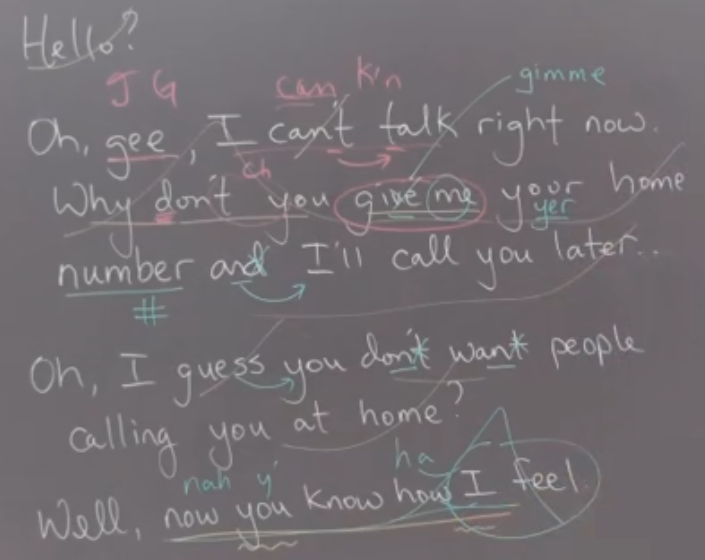 Hello?
J G can k'n gimme
Oh, gee, I can't talk right now.
ch
Why don't you give me your home
yer
number and I'll call you later..
#
Oh, I guess you don't want people
calling you at home?
nah y' ha
Well, now you know how I feel.